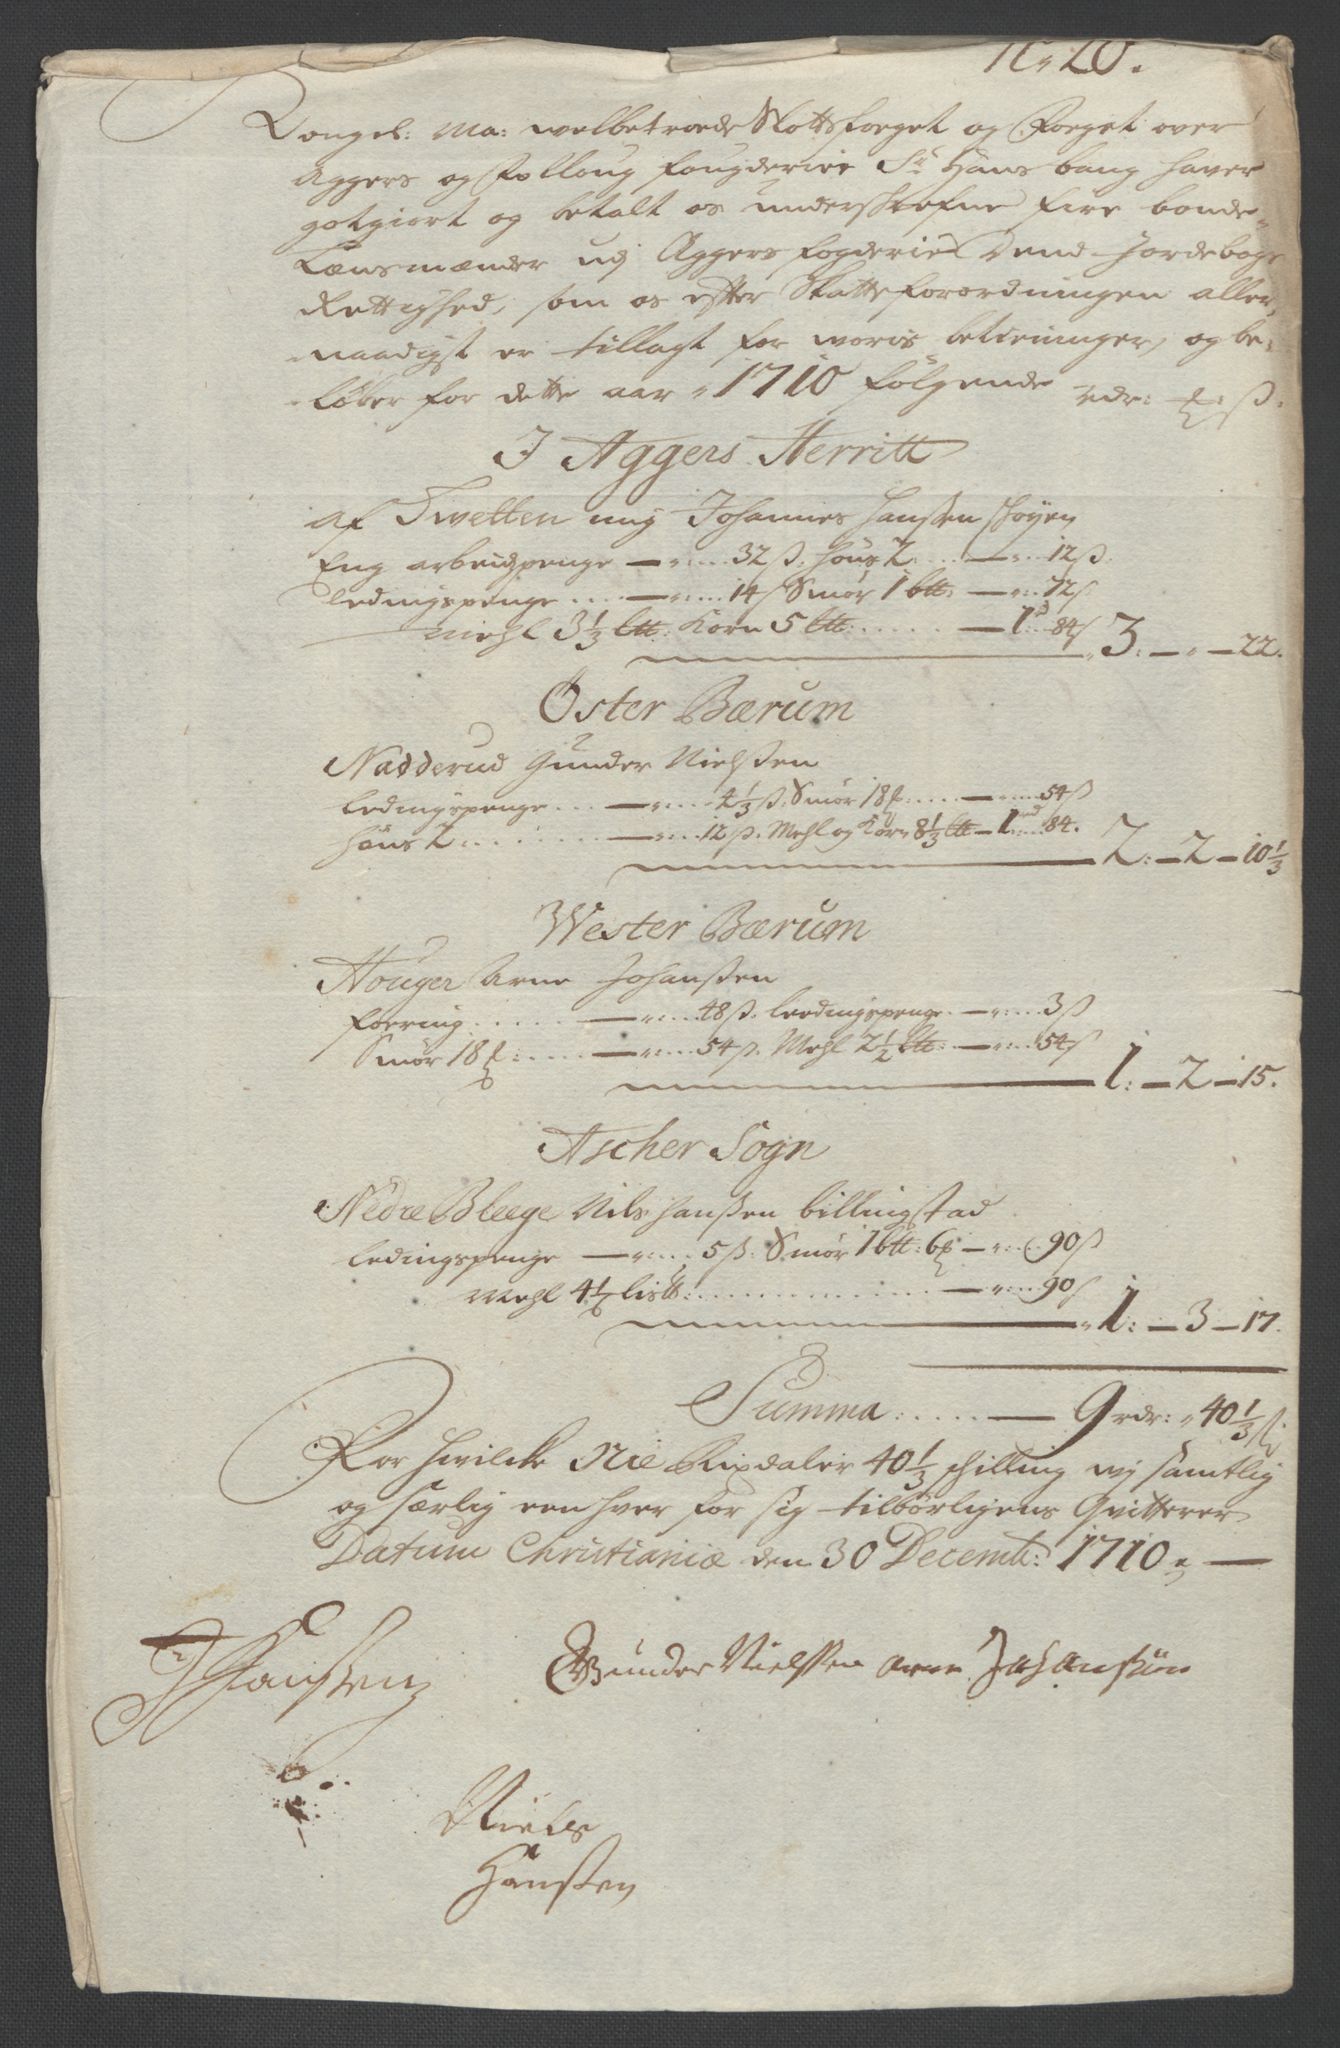 N° 20.
Kongel: Ma: welbetroede Slottsfoeget og Foeget over
Aggers og Folloug fougderier Sr Hans bang hawer
gotgiort og betalt os underskrefne fire bonde-
Lænsmænder udj Aggers fogderie Dend Jordebogs
Rettighed, som os efter Skatteforordningen aller-
naadigst er tillagt for woris betieninger, og be-
løber for dette aar 1710 følgende rdr: ℔: ß.
J Aggers Herritt
af Twetten mig Johannes Hanßen Høyen
Eng arbeidspenge — 32 ß. Høns 2 — 12 ß.
Ledingspenge — 14 ß Smør 1 btt: — 72 ß
Miehl 3 1/3 btt: Korn 5 btt: — 1 rd 84 ß 3: — 22.
Öster Bærum
Nadderud Gunder Nielßen
Ledingspenge — 4 1/3 ß. Smør 18 ℔: — 54 ß
Høns 2: — 12 ß. Mehl og Korn 8 1/3 btt — 1 rd 84. 2: — 2 — 10 1/3
Wester Bærum
Houger Arne Johanßen
Foering — 48 ß. Leedingspenge — 3 ß
Smør 18 ℔: — 54 ß. Mehl 2 1/2 btt: — 54 ß 1: — 2 — 15.
Ascher Sogn
Nedre Bleege Nils Hanßen billingstad
Ledingspenge — 5 ß: Smør 1 btt: 6 ℔ — 90 ß
Mehl 4 1/2 listt: — 90 ß 1: — 3 — 17.
Summa: — 9 rdr: 40 1/3 ß
For hwilcke Nie Rixdaler 40 1/3 skilling wj samtlig
og særlig een hver for sig tilbørligens Qvitterer
Datum Christianiæ den 30 Decemb: 1710
JHanßen Gunder Nielßen arne Johanßøn
Niels
Hanßen